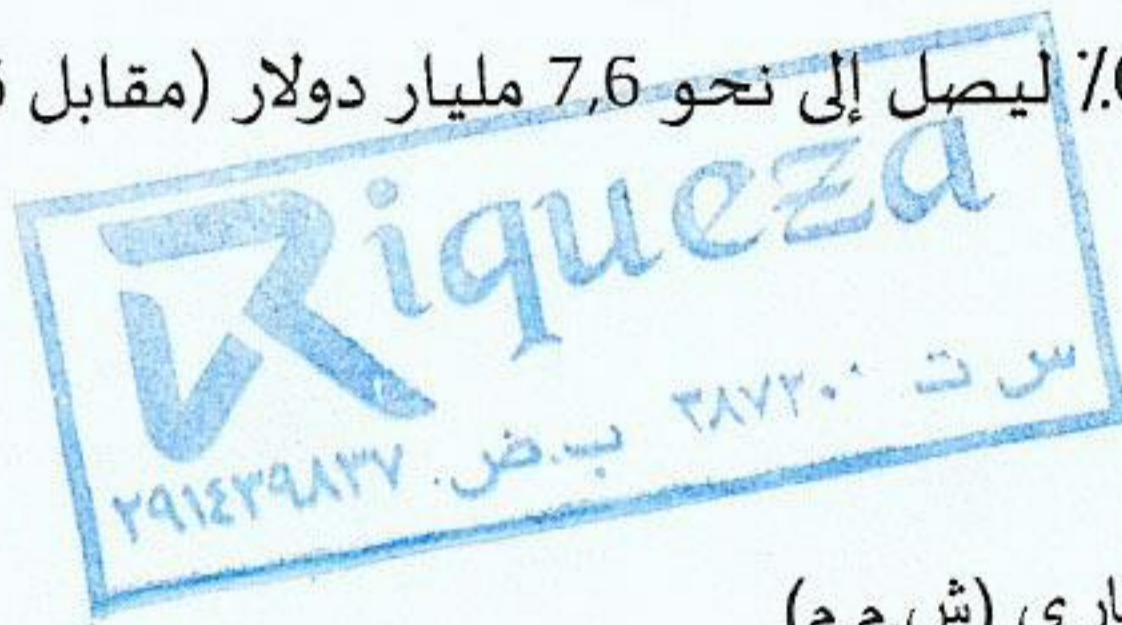 ٪ ليصل إلى نحو 7,6 مليار دولار (مقابل
Riqueza
س ت ٣٨٧٢٠٠ ب.ض. ٢٩١٤٣٩٨٣٧
(ش.م.م)